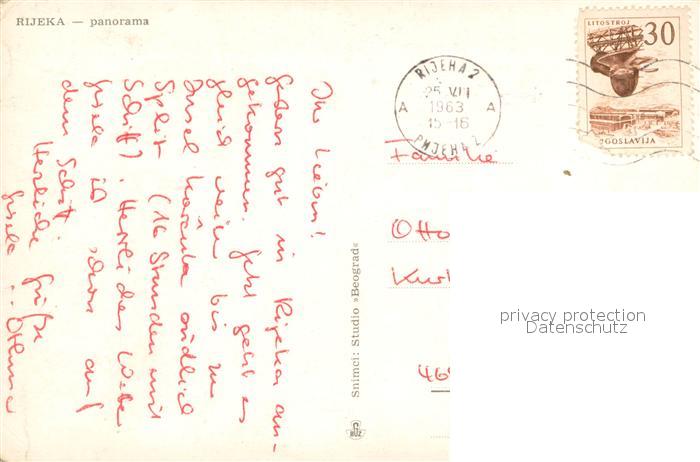 RIJEKA — panorama
Ihr Lieben!
Gestern gut in Rijeka an-
gekommen. Jetzt geht es
gleich weiter bis zur
Insel Korčula südlich
Split (16 Stunden mit
Schiff). Herrliches Wetter
Gisela ist schon auf
dem Schiff.
Herzliche Grüße
Gisela
Snimci: Studio »Beograd«
RIJEKA 2
25 VII
1963
15-16
A A
РИЈЕКА 2
LITOSTROJ
30
JUGOSLAVIJA
Familie
Otto
Kurt
privacy protection
Datenschutz